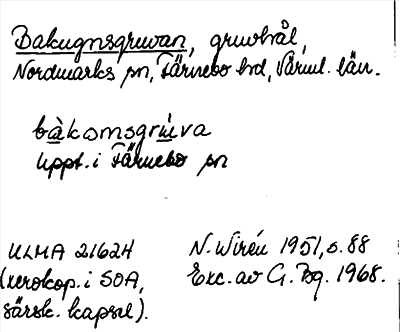 Bakugnsgruvan, gruvhål,
Nordmarks sn, Färnebo hd, Värml. län.
bàkomsgrúva
Uppt. i Färnebo sn
ULMA 21624
N. Wirén 1951, s. 88
(xerokop. i SOA,
Exc. av G. Bg. 1968.
särsk. kapsel).